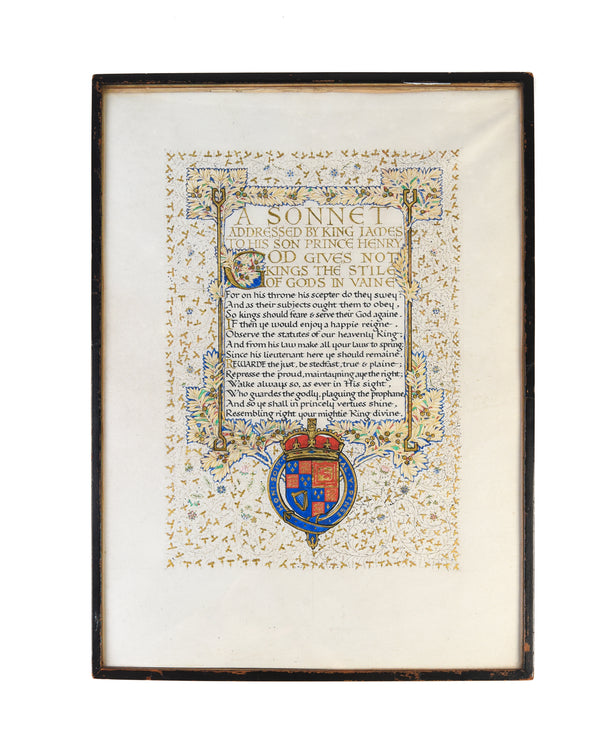 A SONNET
ADDRESSED BY KING JAMES
TO HIS SON PRINCE HENRY
GOD GIVES NOT
KINGS THE STILE
OF GODS IN VAINE
For on his throne his scepter do they swey:
And as their subjects ought them to obey,
So kings should feare & serve their God againe.
IF then ye would enjoy a happie reigne,
Observe the statutes of our heavenly King;
And from his law make all your laws to spring
Since his lieutenant here ye should remaine.
REWARDE the just, be stedfast, true & plaine;
Represse the proud, maintayning aye the right;
Walke always so, as ever in His sight,
Who guardes the godly, plaguing the prophane,
And so ye shall in princely vertues shine,
Resembling right your mightie King divine.
HONI SOI